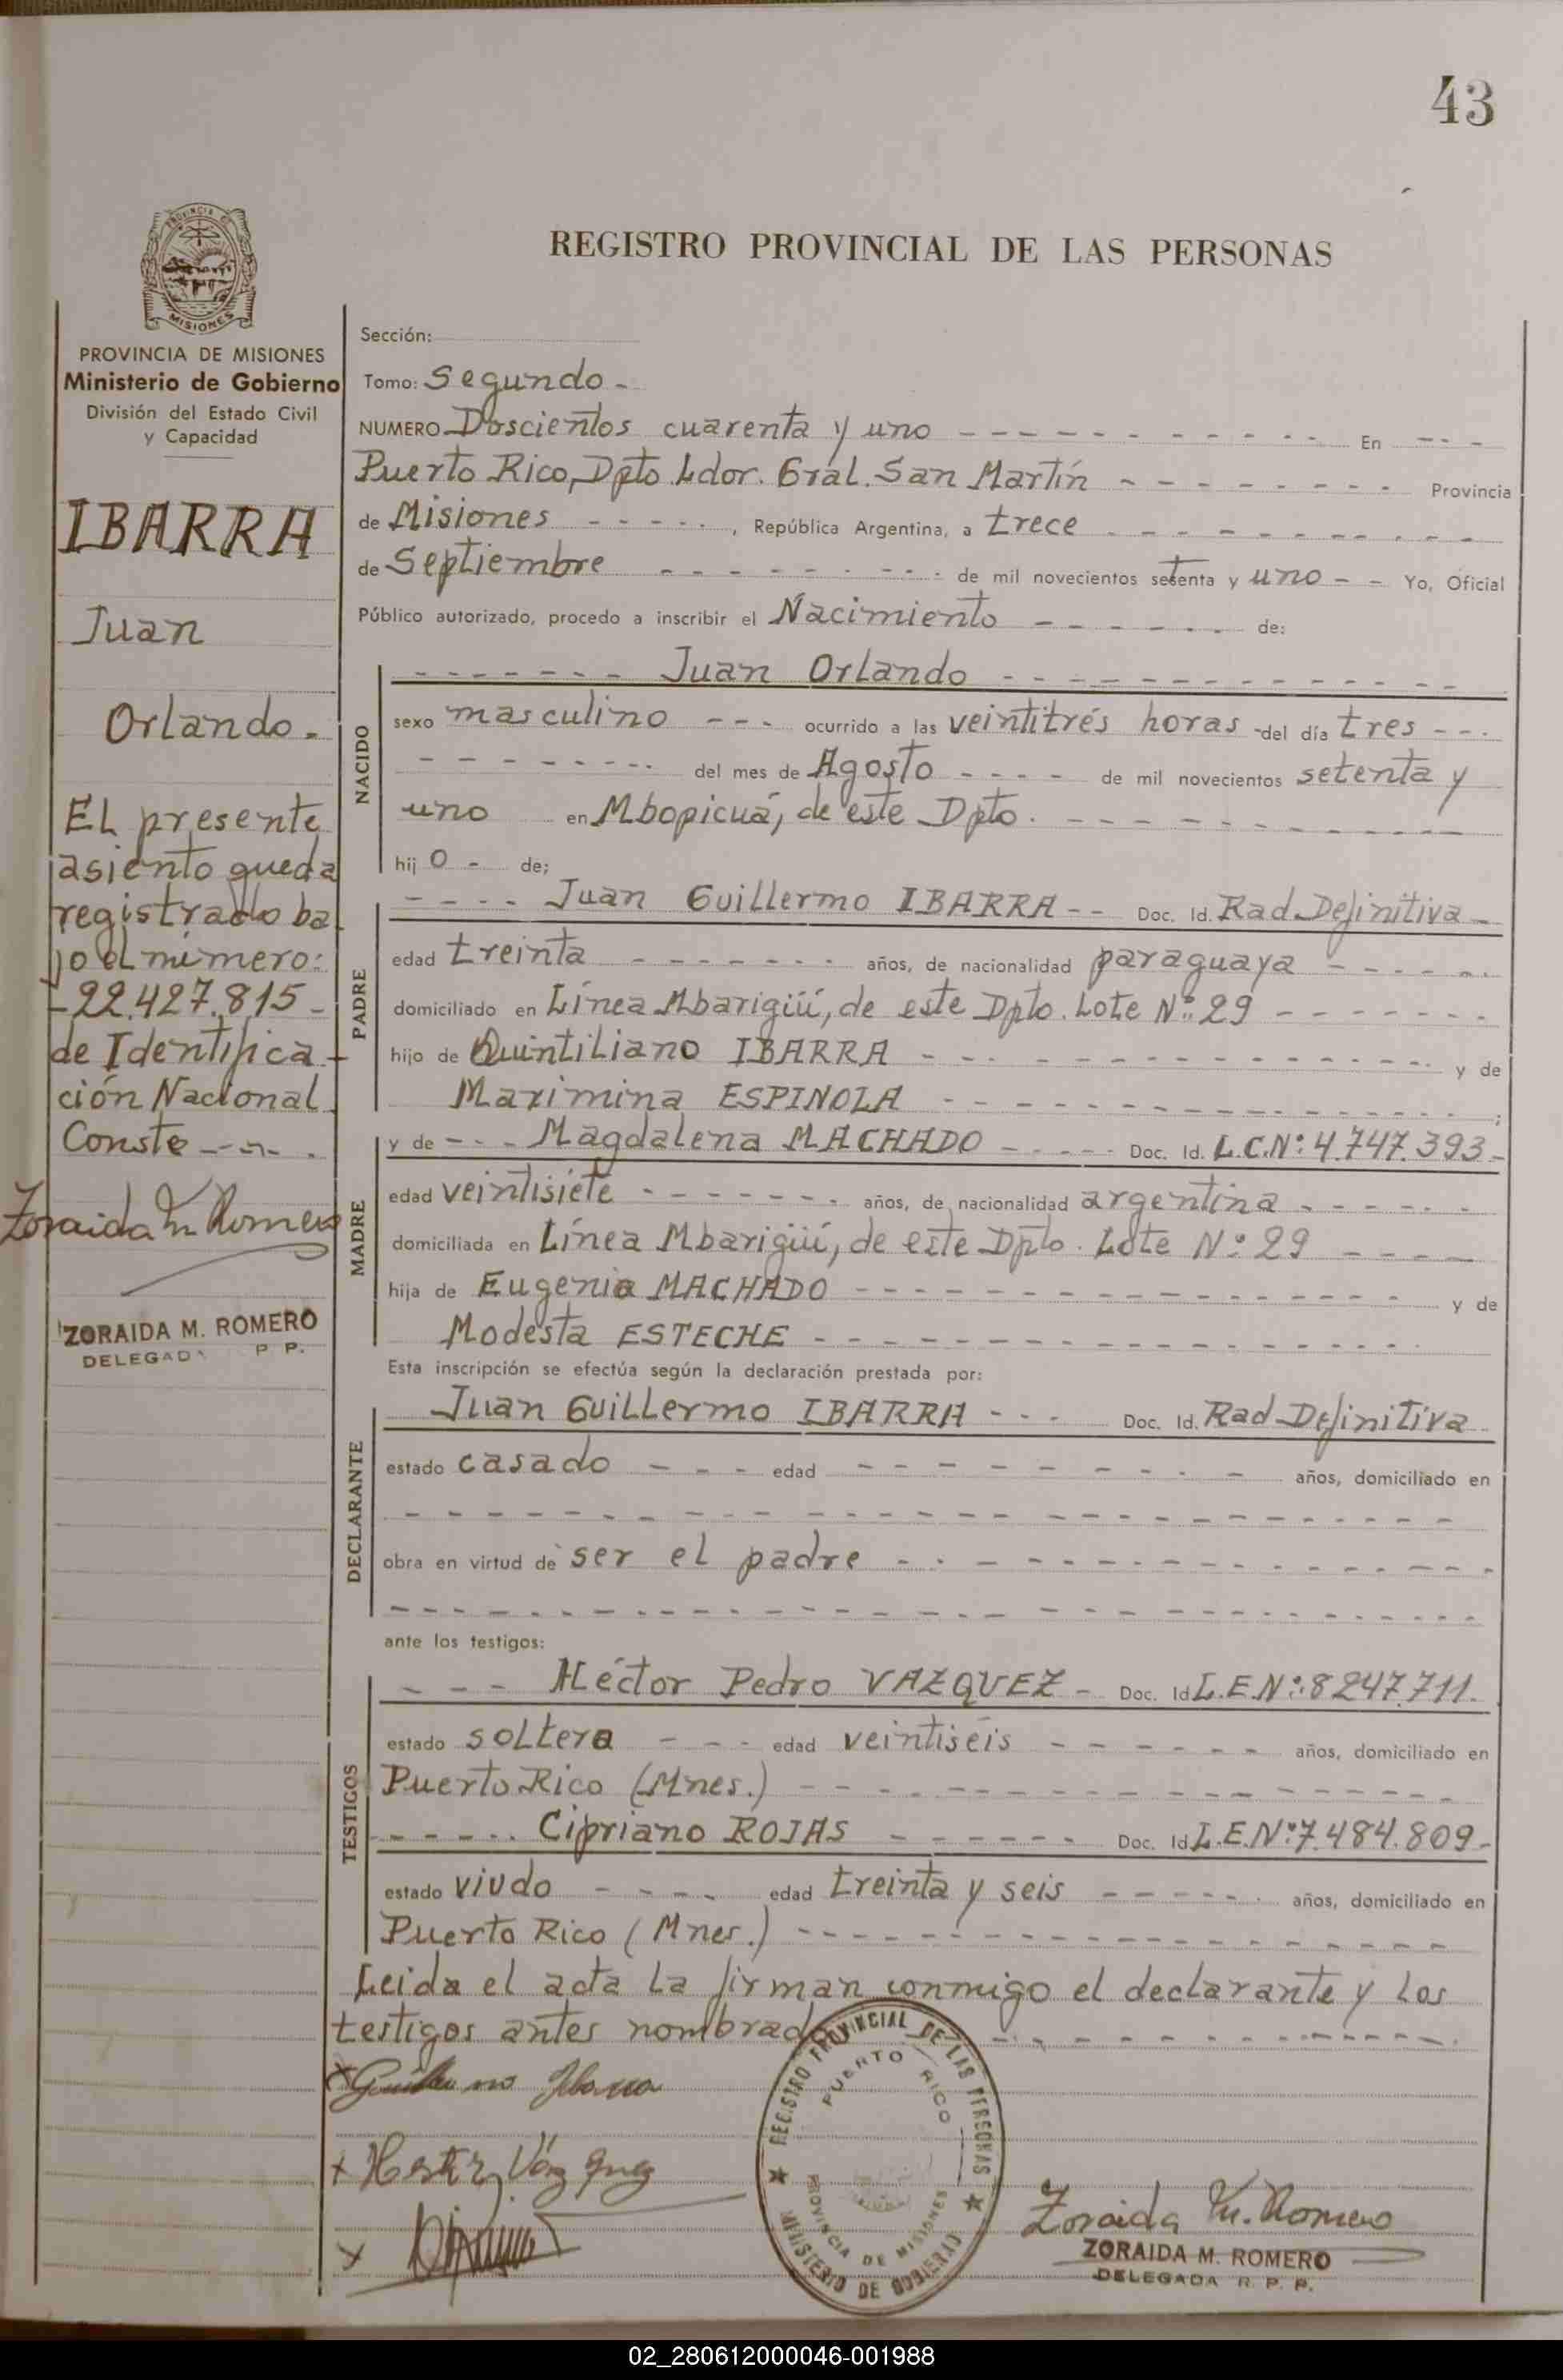 43
REGISTRO PROVINCIAL DE LAS PERSONAS
PROVINCIA DE MISIONES
Ministerio de Gobierno
División del Estado Civil
y Capacidad
IBARRA
Juan
Orlando.
El presente
asiento queda
registrado ba
jo el número:
-22.427.815-
de Identifica-
ción Nacional
Conste
Zoraida M Romero
ZORAIDA M. ROMERO
DELEGADA P P.
Sección:
Tomo: Segundo-
NUMERO Doscientos cuarenta y uno - - - En - - -
Puerto Rico, Dpto Ldor. Gral. San Martín - - - Provincia
de Misiones - - - , República Argentina, a trece - - -
de Septiembre - - - de mil novecientos setenta y uno - - Yo, Oficial
Público autorizado, procedo a inscribir el Nacimiento - - - de:
NACIDO
- - - Juan Orlando - - -
sexo masculino - - - ocurrido a las veintitrés horas - del día tres - - -
- - - del mes de Agosto - - - de mil novecientos setenta y
uno en Mbopicuá, de este Dpto. - - -
hij o - de;
PADRE
- - - Juan Guillermo IBARRA - - Doc. Id. Rad. Definitiva -
edad treinta - - - años, de nacionalidad paraguaya - - -
domiciliado en Línea Mbarigüí, de este Dpto. Lote Nº 29 - - -
hijo de Quintiliano IBARRA - - - y de
Maximina ESPINOLA - - - ;
MADRE
y de - - - Magdalena MACHADO - - - Doc. Id. L.C.Nº: 4.747.393-
edad veintisiete - - - años, de nacionalidad argentina - - -
domiciliada en Línea Mbarigüí, de este Dpto. Lote Nº 29 - - -
hija de Eugenio MACHADO - - - y de
Modesta ESTECHE - - -
Esta inscripción se efectúa según la declaración prestada por:
DECLARANTE
Juan Guillermo IBARRA - - - Doc. Id. Rad Definitiva
estado casado - - - edad - - - años, domiciliado en
- - -
obra en virtud de ser el padre - - -
- - -
ante los testigos:
TESTIGOS
- - - Héctor Pedro VAZQUEZ - Doc. Id L.E.Nº: 8247.711.
estado soltero - - - edad veintiséis - - - años, domiciliado en
Puerto Rico (Mnes.) - - -
- - - Cipriano ROJAS - - - Doc. Id L.E.Nº: 7.484.809-
estado viudo - - - edad treinta y seis - - - años, domiciliado en
Puerto Rico (Mnes.) - - -
Leida el acta la firman conmigo el declarante y los
testigos antes nombrados - - -
x Guillermo Ibarra
x Hector Vázquez
x
REGISTRO PROVINCIAL DE LAS PERSONAS
PUERTO RICO
PROVINCIA DE MISIONES
MINISTERIO DE GOBIERNO
Zoraida M. Romero
ZORAIDA M. ROMERO
DELEGADA R. P. P.
02_280612000046-001988